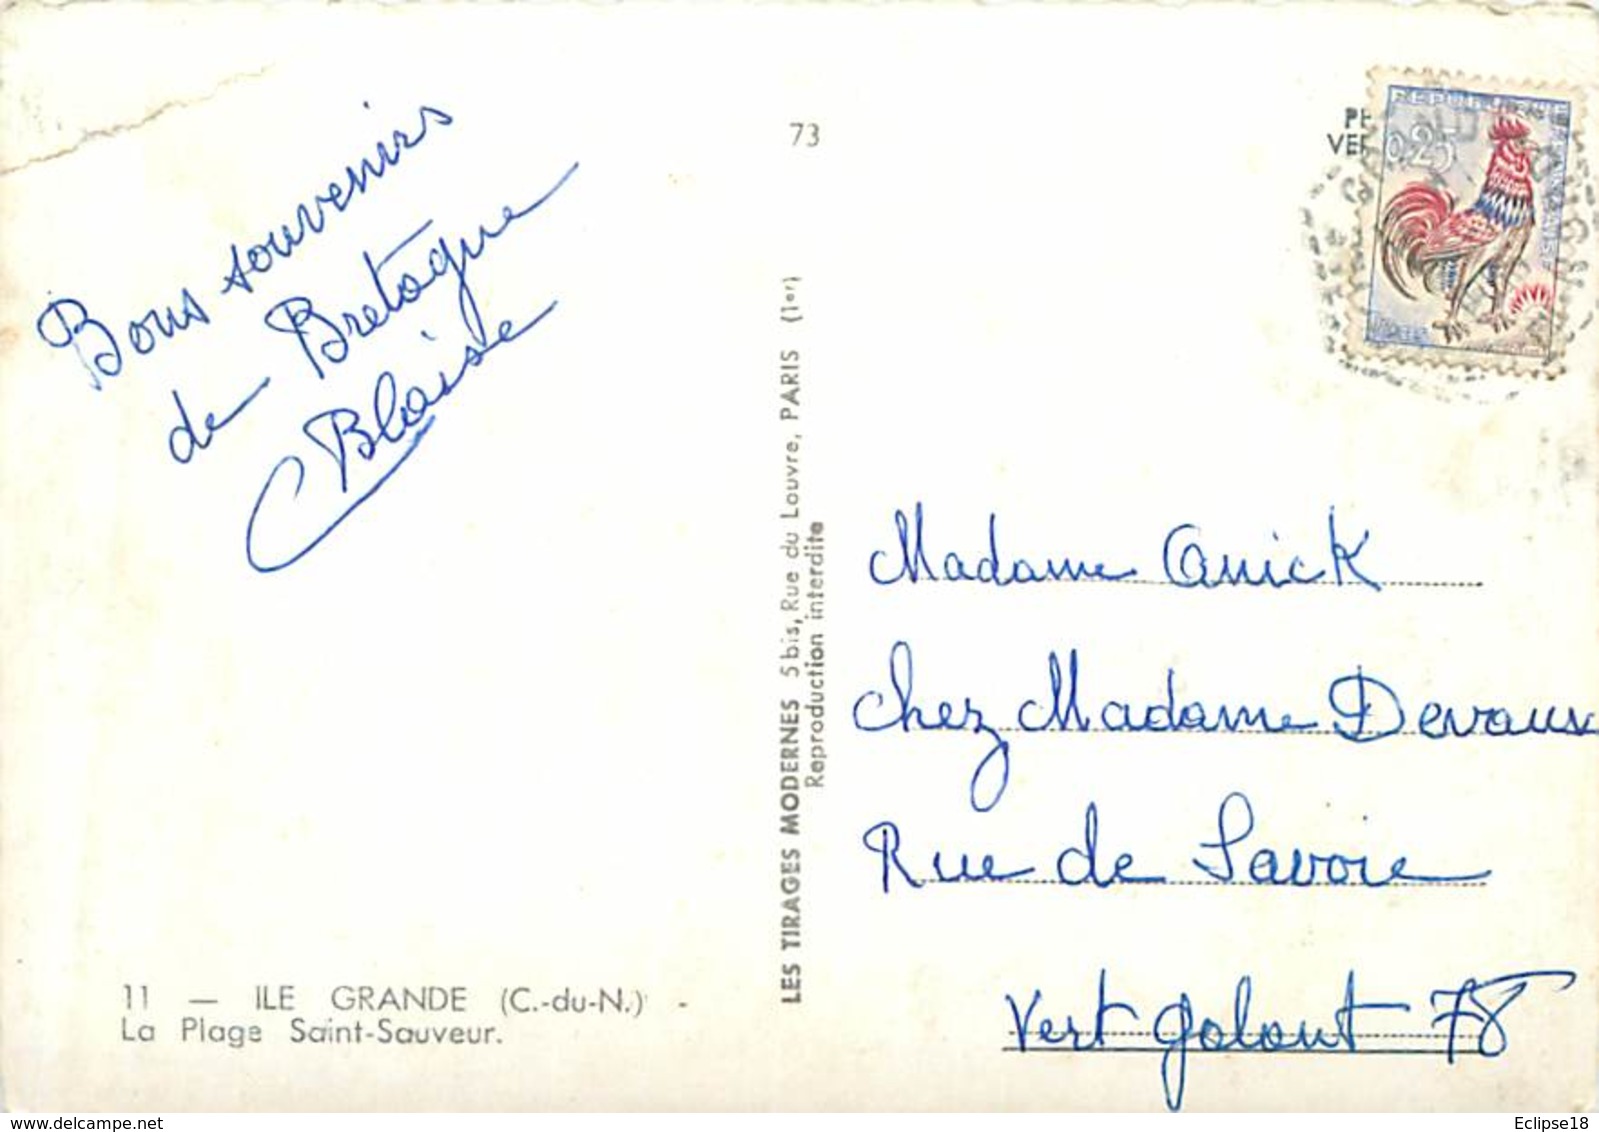 Bons souvenirs
de Bretagne
Blaise
11 — ILE GRANDE (C.-du-N.) -
La Plage Saint-Sauveur.
73
LES TIRAGES MODERNES 5 bis, Rue du Louvre, PARIS (1er)
Reproduction interdite
0,25
Madame Anick
chez Madame Devaux
Rue de Savoie
Vert galant 78
www.delcampe.net
Eclipse18